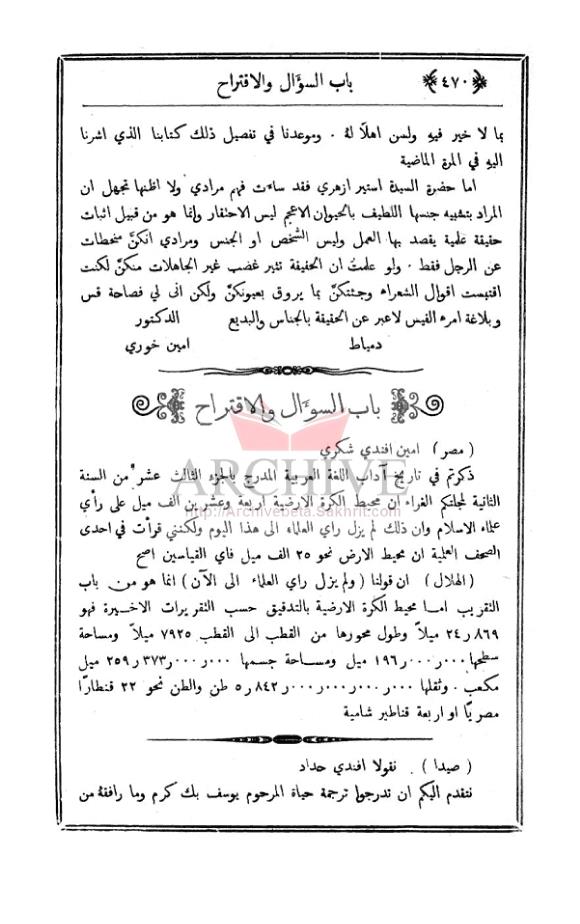 ٤٧٠ باب السؤَال والاقتراح
بما لا خير فيهِ ولسن اهلاً لهُ . وموعدنا في تفصيل ذلك كتابنا الذي اشرنا
اليهِ في المرة الماضية
اما حضرة السيدة استير ازهري فقد ساءت فهم مرادي ولا اظنها تجهل ان
المراد بتشبيه جنسها اللطيف بالحيوان الاعجم ليس الاحتقار وانما هو من قبيل اثبات
حقيقة علمية يقصد بها العمل وليس الشخص او الجنس ومرادي انكنَّ منحطات
عن الرجل فقط . ولو علمتُ ان الحقيقة تثير غضب غير الجاهلات منكنَّ لكنت
اقتبست اقوال الشعراء وجئتكنَّ بما يروق بعيونكنَّ ولكن انى لي فصاحة قس
وبلاغة امرء القيس لاعبر عن الحقيقة بالجناس والبديع الدكتور
دمياط امين خوري
باب السؤَال والاقتراح
( مصر ) امين افندي شكري
ذكرتم في تاريخ آداب اللغة العربية المدرج بالجزء الثالث عشر من السنة
الثانية لمجلتكم الغراء ان محيط الكرة الارضية اربعة وعشرين الف ميل على رأي
علماء الاسلام وان ذلك لم يزل راي العلماء الى هذا اليوم ولكنني قرأت في احدى
الصحف العلمية ان محيط الارض نحو ٢٥ الف ميل فاي القياسين اصح
( الهلال ) ان قولنا ( ولم يزل راي العلماء الى الآن ) انما هو من باب
التقريب اما محيط الكرة الارضية بالتدقيق حسب التقريرات الاخيرة فهو
٨٦٩ر٢٤ ميلاً وطول محورها من القطب الى القطب ٧٩٢٥ ميلاً ومساحة
سطحها ٠٠٠ر٠٠٠ر١٩٦ ميل ومساحة جسمها ٠٠٠ر٠٠٠ر٣٧٣ر٢٥٩ ميل
مكعب . وثقلها ٠٠٠ر٠٠٠ر٠٠٠ر٠٠٠ر٨٤٢ر٥ طن والطن نحو ٢٢ قنطارًا
مصريًا او اربعة قناطير شامية
( صيدا ) . نقولا افندي حداد
نتقدم اليكم ان تدرجوا ترجمة حياة المرحوم يوسف بك كرم وما رافقهُ من
ARCHIVE
http://Archivebeta.Sakhrit.com